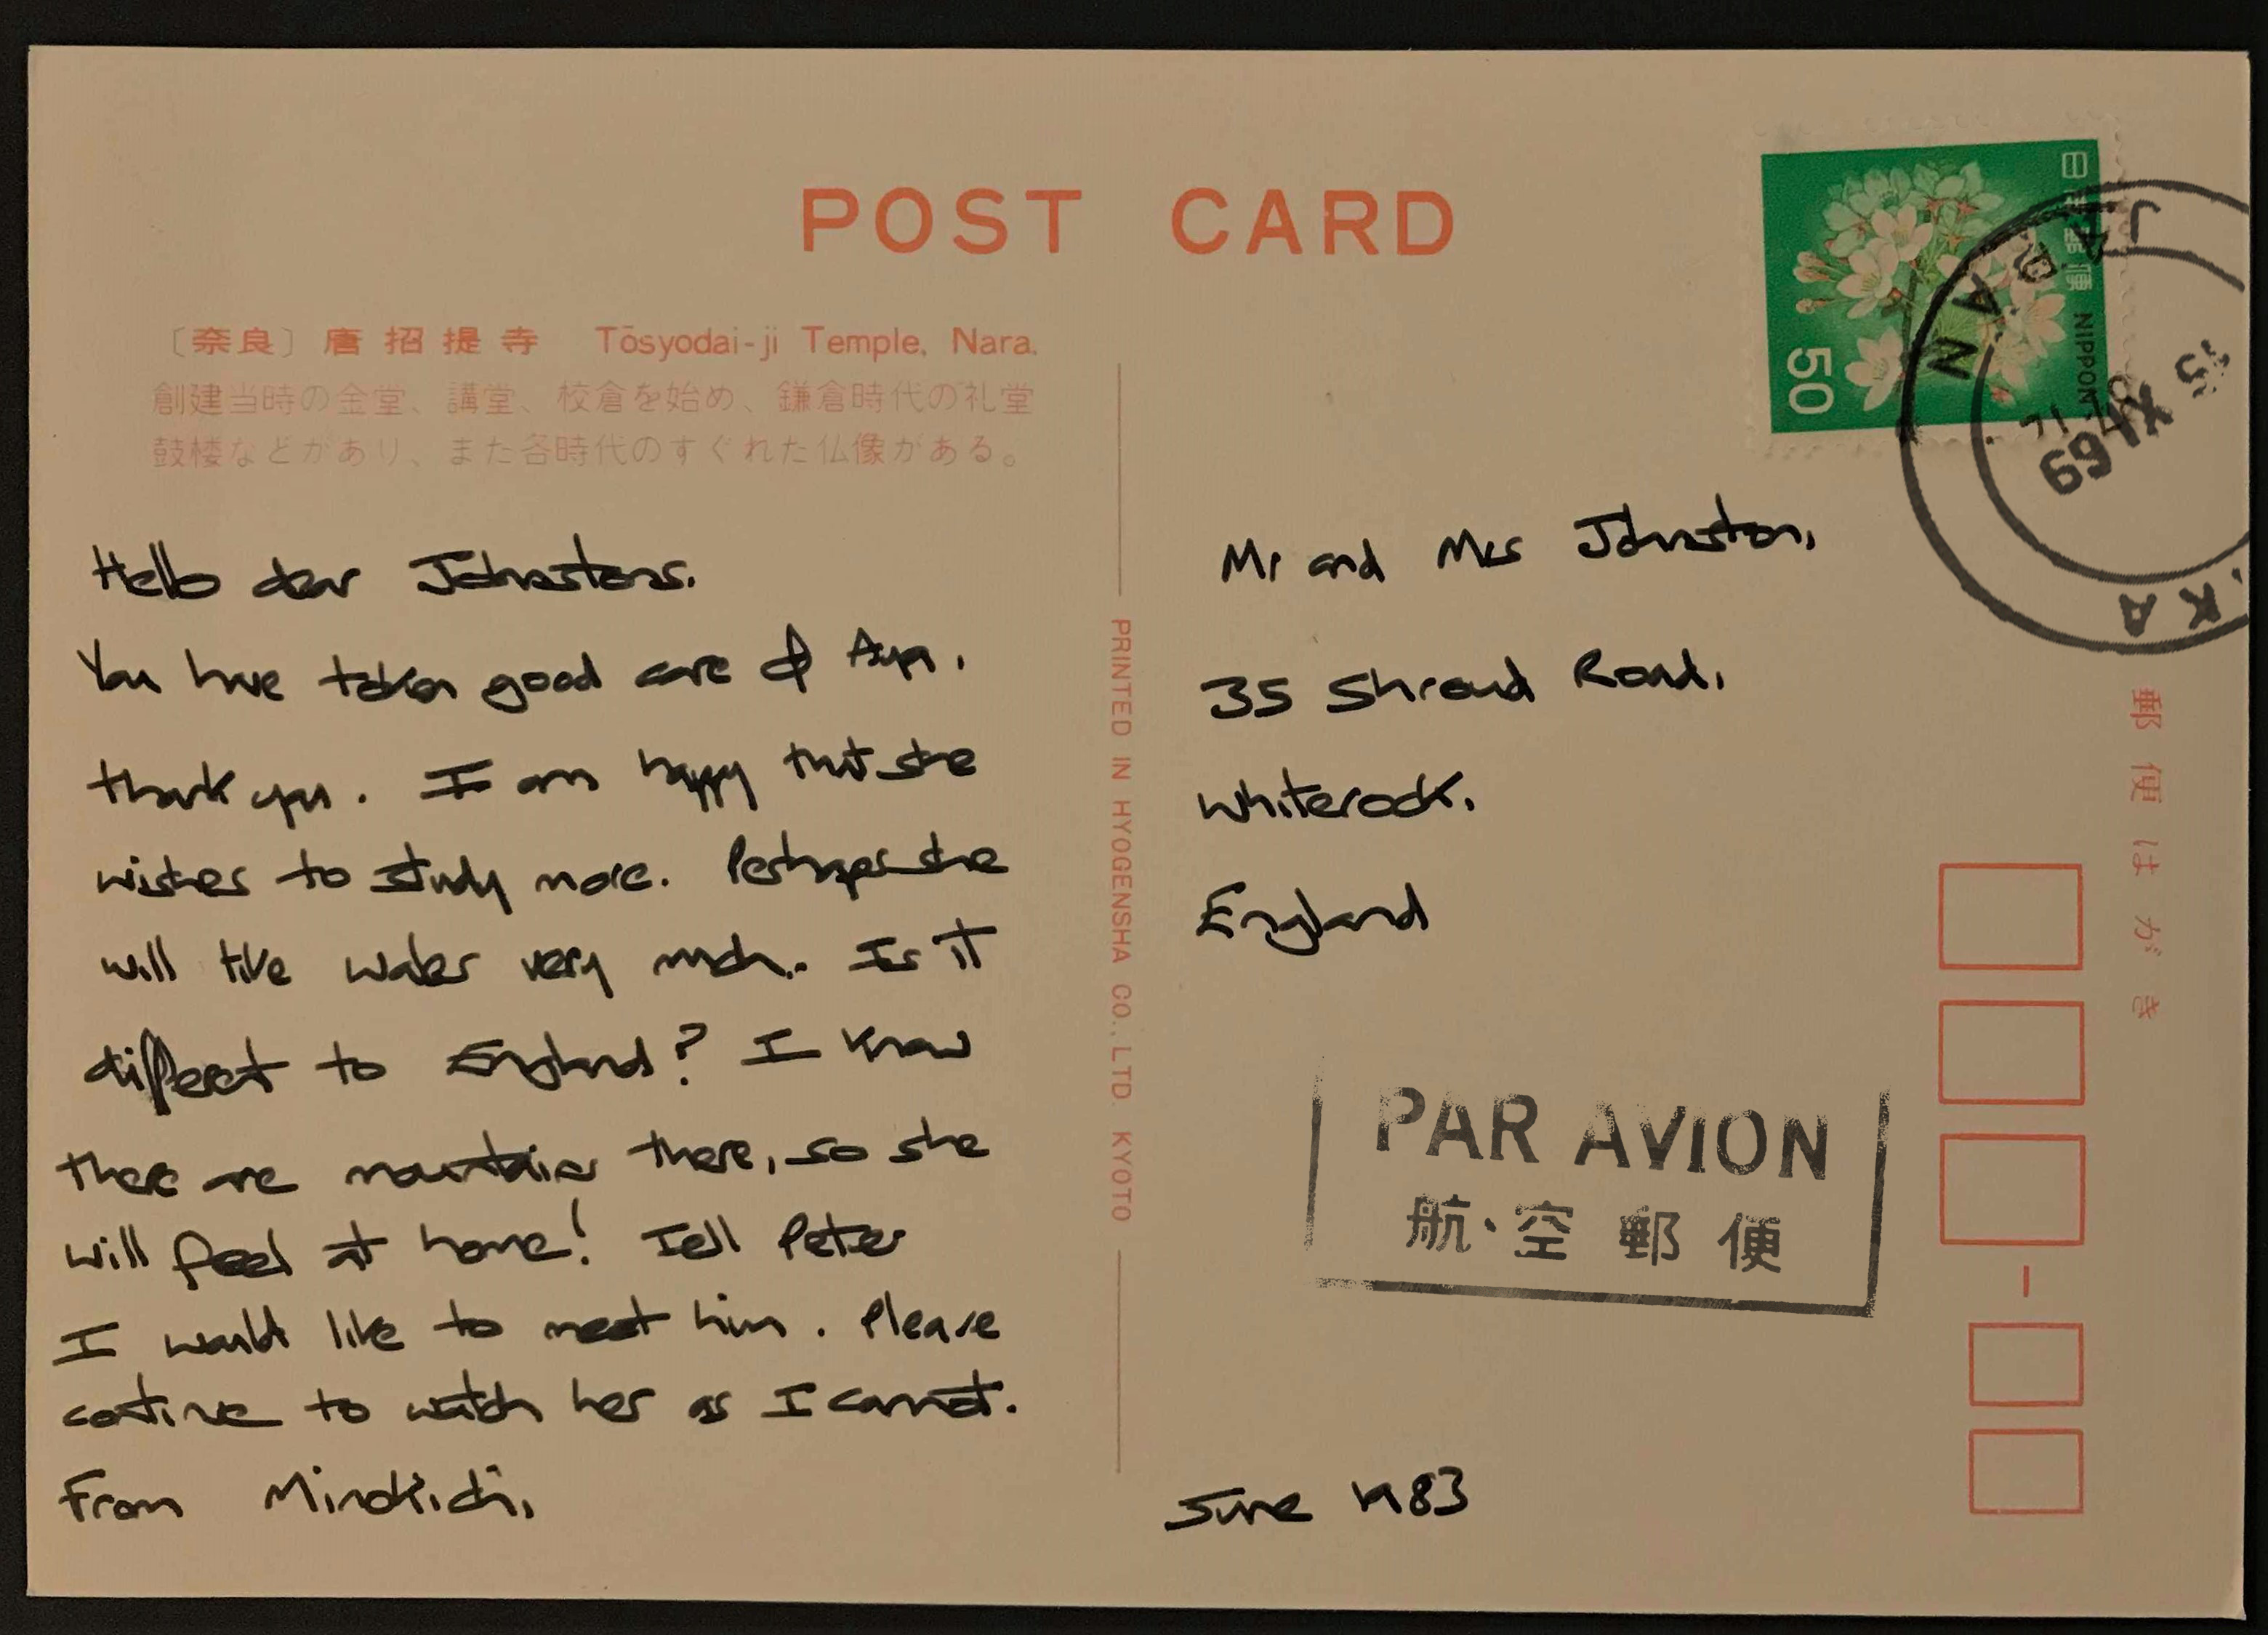 POST CARD
〔奈良〕唐招提寺 Tōsyodai-ji Temple, Nara.
創建当時の金堂、講堂、校倉を始め、鎌倉時代の礼堂
鼓楼などがあり、また各時代のすぐれた仏像がある。
Hello dear Johnstons.
You have taken good care of Aya,
thank you. I am happy that she
wishes to study more. Perhaps she
will like Wales very much. Is it
different to England? I know
there are mountains there, so she
will feel at home! Tell Peter
I would like to meet him. Please
continue to watch her as I cannot.
From Minokichi,
PRINTED IN HYOGENSHA CO., LTD. KYOTO
日本郵便 NIPPON
50
JAPAN
69
KA
Mr and Mrs Johnston,
35 Shroud Road,
Whiterock,
England
PAR AVION
航空郵便
June 1983
郵便はがき